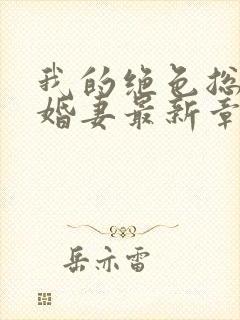 我的绝色总
婚妻最新章
岳亦雷